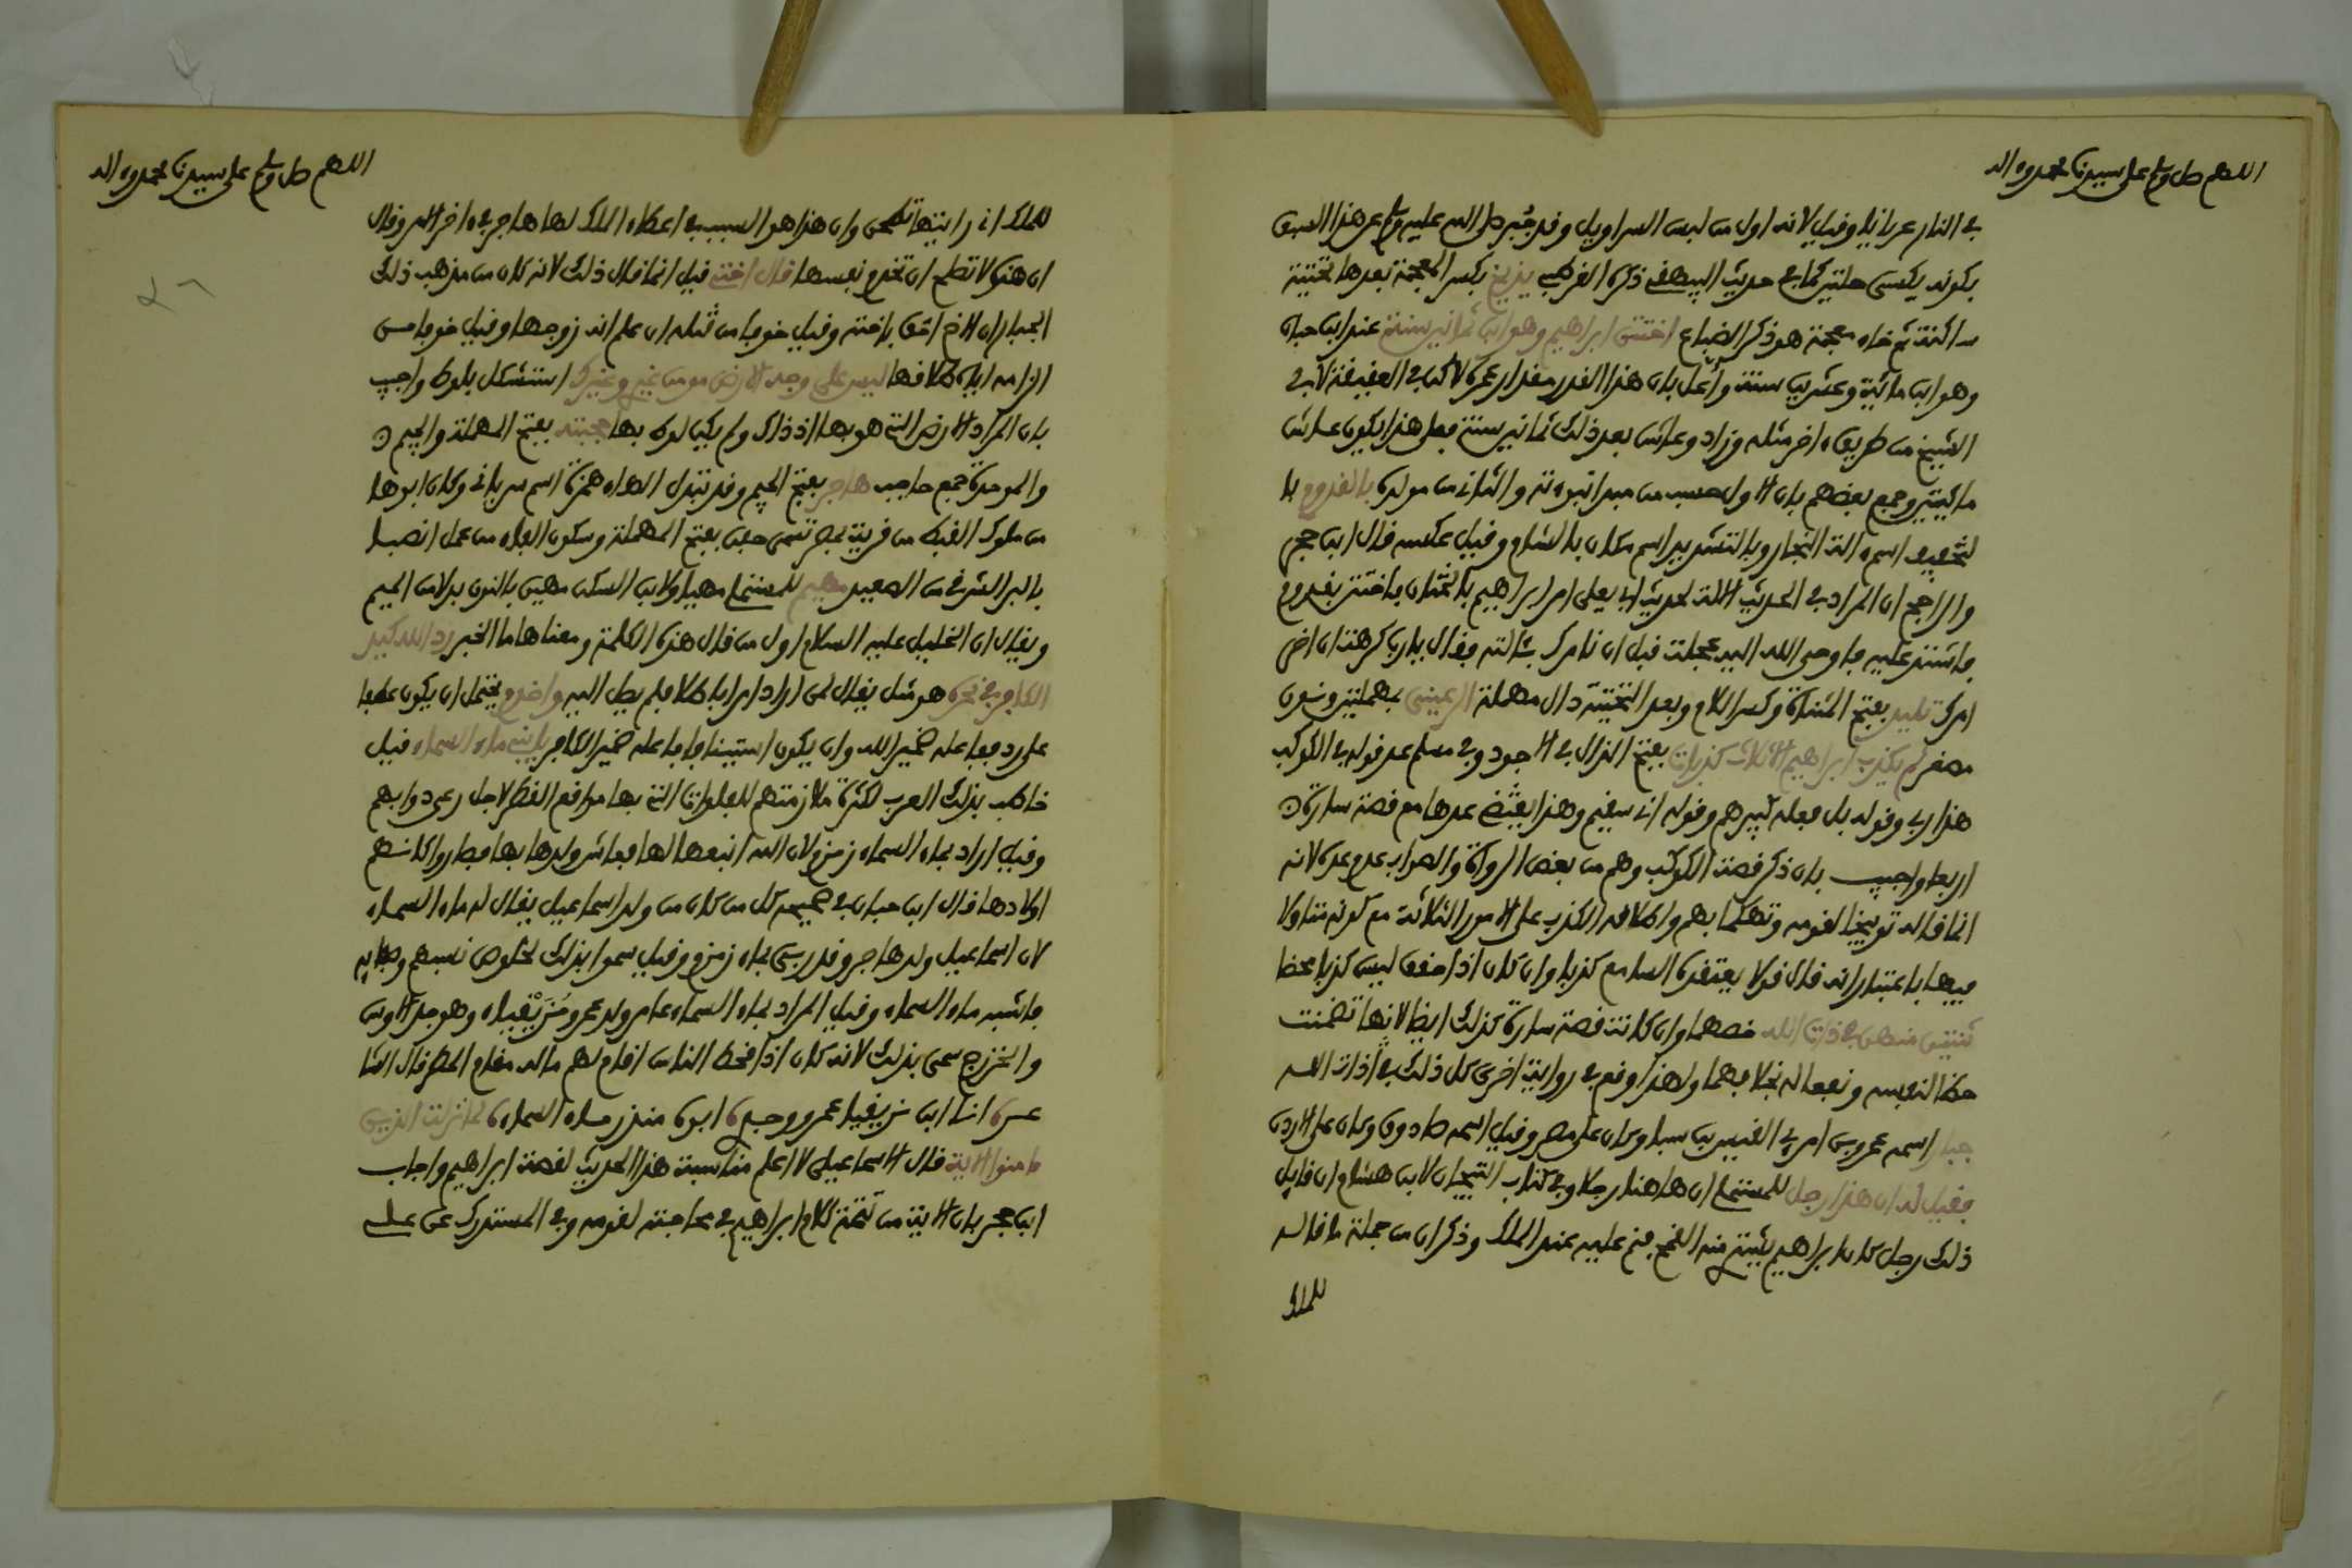 اللهم صل وسلم على سيدنا محمد وءاله
في النار عريانا وقيل لانه اول من لبس السراويل وقد جُبر صلى الله عليه وسلم عن هذا السبق
بكونه يكسى حلتين كما في حديث البيهقي ذكره القرطبي بذيخ بكسر المعجمة بعدها تحتية
ساكنة ثم خاء معجمة هو ذكر الضباع اختتن ابراهيم وهو ابن ثمانين سنة عند ابن حبان
وهو ابن مائة وعشرين سنة وأعل بان هذا القدر مقدار عمره لاكن في العقيقة لأبي
الشيخ من طريق ءاخر مثله وزاد وعاش بعد ذلك ثمانين سنة فعلى هذا يكون عاش
مائتين وجمع بعضهم بان الاول حسب من مبدإ نبوءته والثاني من مولده بالقدوم با
لتخفيف اسم ءالة النجار وبالتشديد اسم مكان بالشام وقيل عكسه قال ابن حجر
والراجح ان المراد في الحديث الالة لحديث ابي يعلى امر ابراهيم بالختان فاختتن بقدوم
فاشتد عليه فاوحى الله اليه عجلت قبل ان نامرك بئالته فقال يارب كرهت ان اؤخر
امرك تليد بفتح المثناة وكسر اللام وبعد التحتية دال مهملة الرعيني بمهملتين ونون
مصغر لم يكذب ابراهيم الا ثلاث كذبات بفتح الذال في الاجود وفي مسلم عد قوله في الكوكب
هذا ربي وقوله بل فعله كبيرهم وقوله اني سقيم وهذا يقتضي عدها مع قصة سارة
اربعا واجيب بان ذكر قصة الكوكب وهم من بعض الرواة والصواب عدم عده لانه
انما قاله توبيخا لقومه وتهكما بهم واطلاقه الكذب على الامور الثلاثة مع كونه متاولا
فيها باعتبار انه قال قولا يعتقده السامع كذبا وان كان اذا حقق ليس كذبا محضا
ثنتين منهن في ذات الله خصهما وان كانت قصة سارة كذلك ايضا لانها تضمنت
حظا لنفسه ونفعا له بخلافهما ولهذا وقع في رواية اخرى كل ذلك في ذات الله
جبار اسمه عمرو بن امرئ القيس بن سبا وكان على مصر وقيل اسمه صادوق وكان على الاردن
فقيل له ان هذا رجل للمستملي ان هاهنا رجلا وفي كتاب التيجان لابن هشام ان قايل
ذلك رجل كان ابراهيم يشتري منه القمح فنم عليه عند الملك وذكر ان من جملة ما قاله
للملك
اللهم صل وسلم على سيدنا محمد وءاله
للملك اني رايتها تطحن وان هذا هو السبب في اعطاء الملك لها هاجر في ءاخر الامر وقال
ان هذه لا تصلح ان تخدم نفسها قال اختي قيل انما قال ذلك لانه كان من مذهب ذلك
الجبار ان الاخ احق باخته وقيل خوفا من قتله ان علم انه زوجها وقيل خوفا من
الزامه اياه طلاقها ليس على وجه الارض مومن غيري وغيرك استشكل بلوط واجيب
بان المراد الارض التي هو بها اذ ذاك ولم يكن لوط بها حجبته بفتح المهملة والجيم
والموحدة جمع حاجب هاجر بفتح الجيم وقد تبدل الهاء همزة اسم سرياني وكان ابوها
من ملوك القبط من قرية بمصر تسمى حفن بفتح المهملة وسكون الفاء من عمل انصنا
بالبر الشرقي من الصعيد مهيم للمستملي مهيا ولابن السكن مهين بالنون بدلا من الميم
ويقال ان الخليل عليه السلام اول من قال هذه الكلمة ومعناها ما الخبر رد الله كيد
الكافر في نحره هو مثل يقال لمن اراد امرا باطلا فلم يصل اليه واخدم يحتمل ان يكون عطفا
على رد ففاعله ضمير الله وان يكون استينافا ففاعله ضمير الكافر يابني ماء السماء قيل
خاطب بذلك العرب لكثرة ملازمتهم للفلوات التي بها مواقع القطر لاجل رعي دوابهم
وقيل اراد بماء السماء زمزم لان الله انبعها لها فعاش ولدها بها فصاروا كانهم
اولادها قال ابن حبان في صحيحه كل من كان من ولد اسماعيل يقال له ماء السماء
لان اسماعيل ولد هاجر وقد ربي بماء زمزم وقيل سموا بذلك لخلوص نسبهم وصفائه
فاشبه ماء السماء وقيل المراد بماء السماء عامر ولد عمرو مُزَيْقِياء وهو جد الاوس
والخزرج سمي بذلك لانه كان اذا قحط الناس اقام لهم ماله مقام المطر قال الشا
عره انا ابن مزيقيا عمرو وجدي ابوه منذر ماء السماء لما نزلت الذين
ءامنوا الاية قال الاسماعيلي لا اعلم مناسبة هذا الحديث لقصة ابراهيم واجاب
ابن حجر بان الاية من تتمة كلام ابراهيم في محاجته لقومه وفي المستدرك عن علي